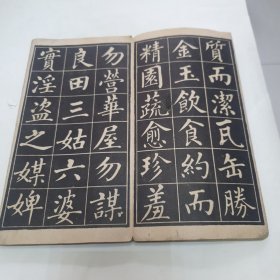 質而潔瓦缶勝
金玉飲食約而
精園蔬愈珍羞
勿營華屋勿謀
良田三姑六婆
實淫盜之媒婢